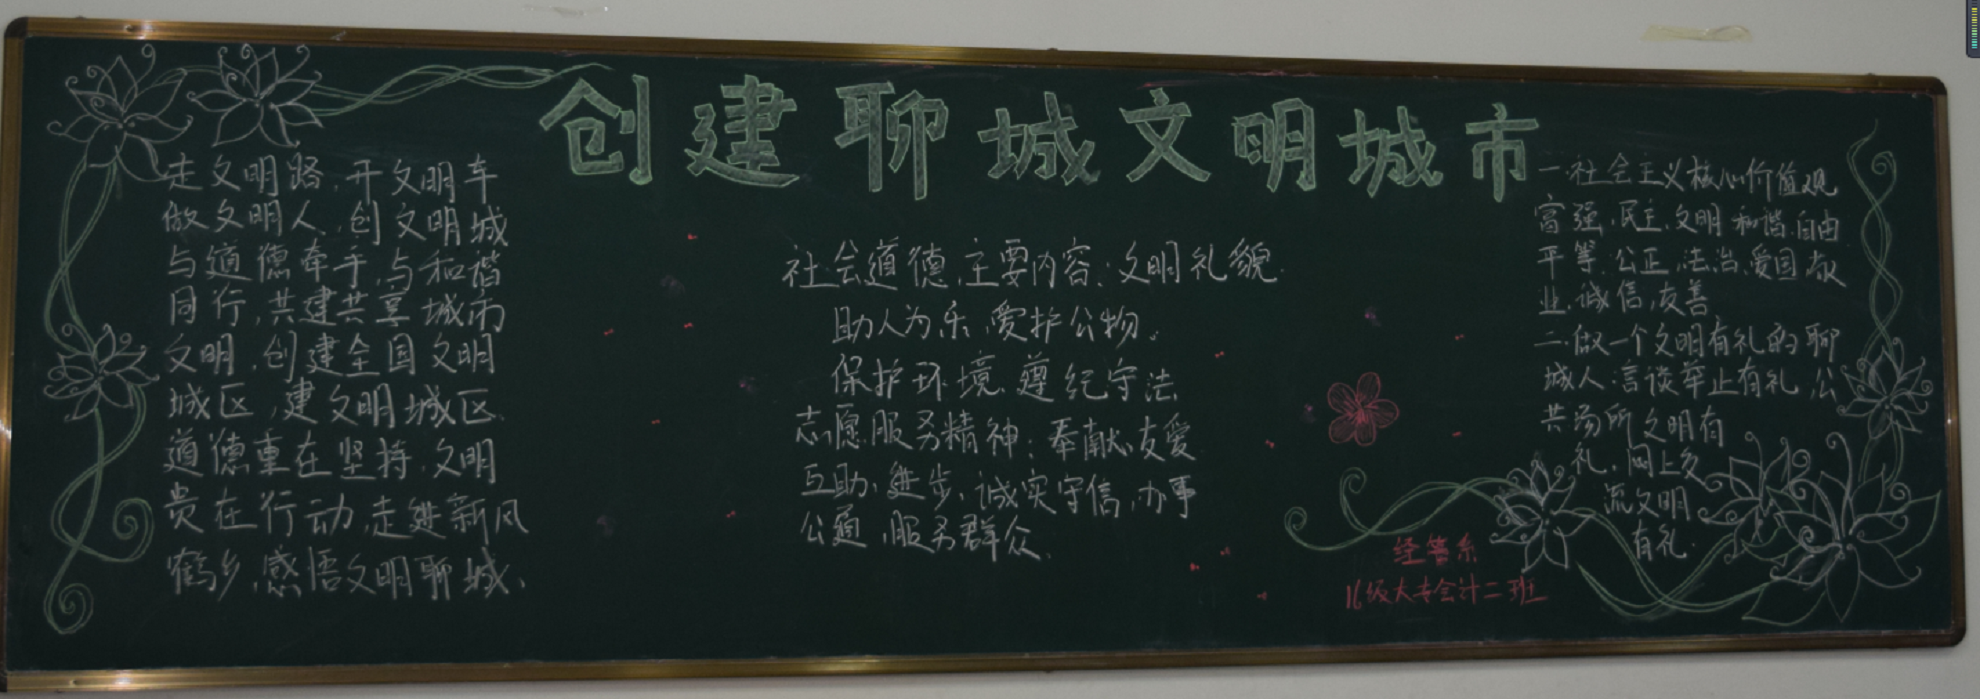 创建聊城文明城市
走文明路,开文明车
做文明人,创文明城
与道德牵手,与和谐
同行,共建共享城市
文明,创建全国文明
城区,建文明城区.
道德重在坚持,文明
贵在行动,走进新风
鹤乡,感悟文明聊城、
社会道德、主要内容:文明礼貌.
助人为乐、爱护公物。
保护环境、遵纪守法
志愿服务精神:奉献、友爱
互助、进步、诚实守信,办事
公道,服务群众、
一.社会主义核心价值观
富强、民主、文明 和谐.自由
平等.公正.法治.爱国.敬
业.诚信,友善
二.做一个文明有礼的聊
城人:言谈举止有礼,公
共场所文明有
礼,网上交
流文明
有礼.
经管系
16级大专会计二班